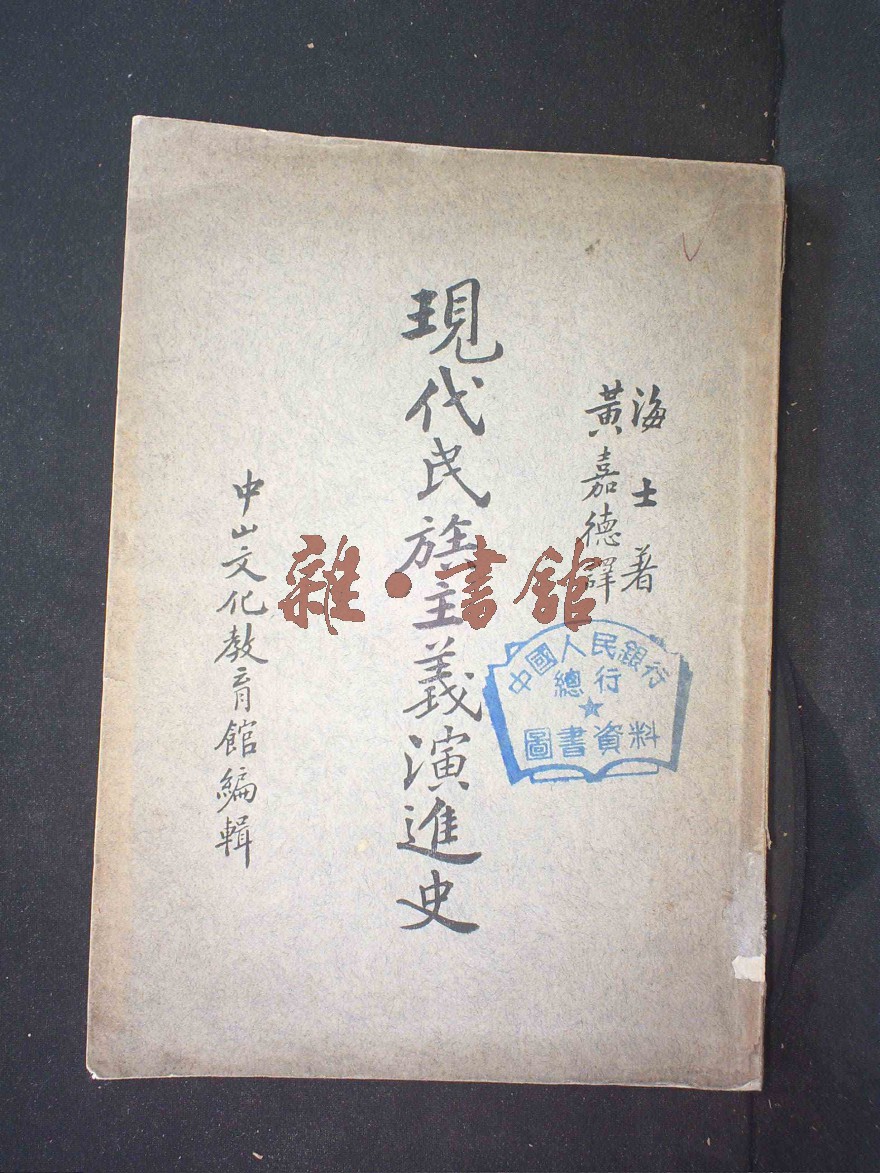 海士著
黃嘉德譯
現代民族主義演進史
中山文化教育館編輯
雜·書館
中國人民銀行
總行
圖書資料